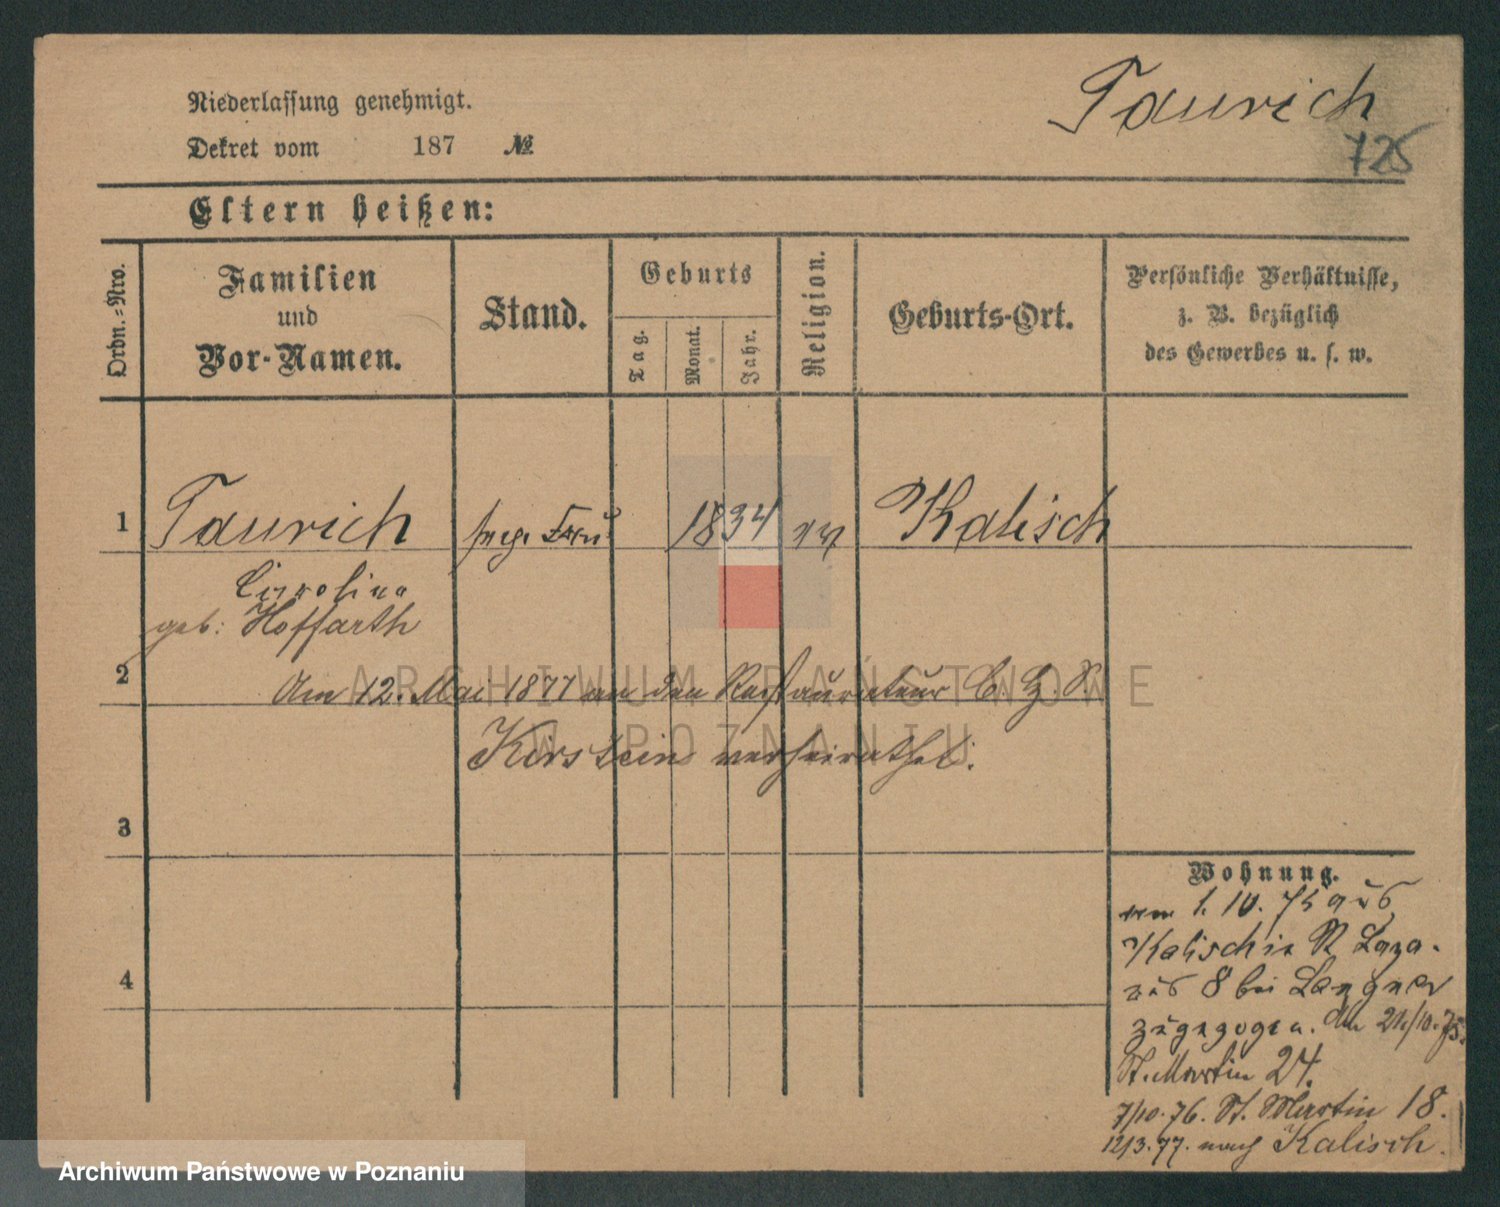 Niederlassung genehmigt.
Dekret vom 187 №
Taurich
725
Eltern heißen:
Ordn.-Nro.
Familien
und
Vor-Namen.
Stand.
Geburts
Tag.
Monat.
Jahr.
Religion.
Geburts-Ort.
Persönliche Verhältnisse,
z. B. bezüglich
des Gewerbes u. s. w.
1 Taurich Frau 1834 ev Kalisch
Carolina
geb: Hoffarth
2
Am 12. Mai 1877 an den Restaurateur C. H. R.
Kirstein verheirathet.
3
4
Wohnung.
vom 1. 10. 75 aus
Kalisch in St Laza-
rus 8 bei Langner
zugezogen. Am 21/10. 75.
St. Martin 24.
7/10. 76. St. Martin 18.
12/3. 77. nach Kalisch.
ARCHIWUM PAŃSTWOWE
W POZNANIU
Archiwum Państwowe w Poznaniu